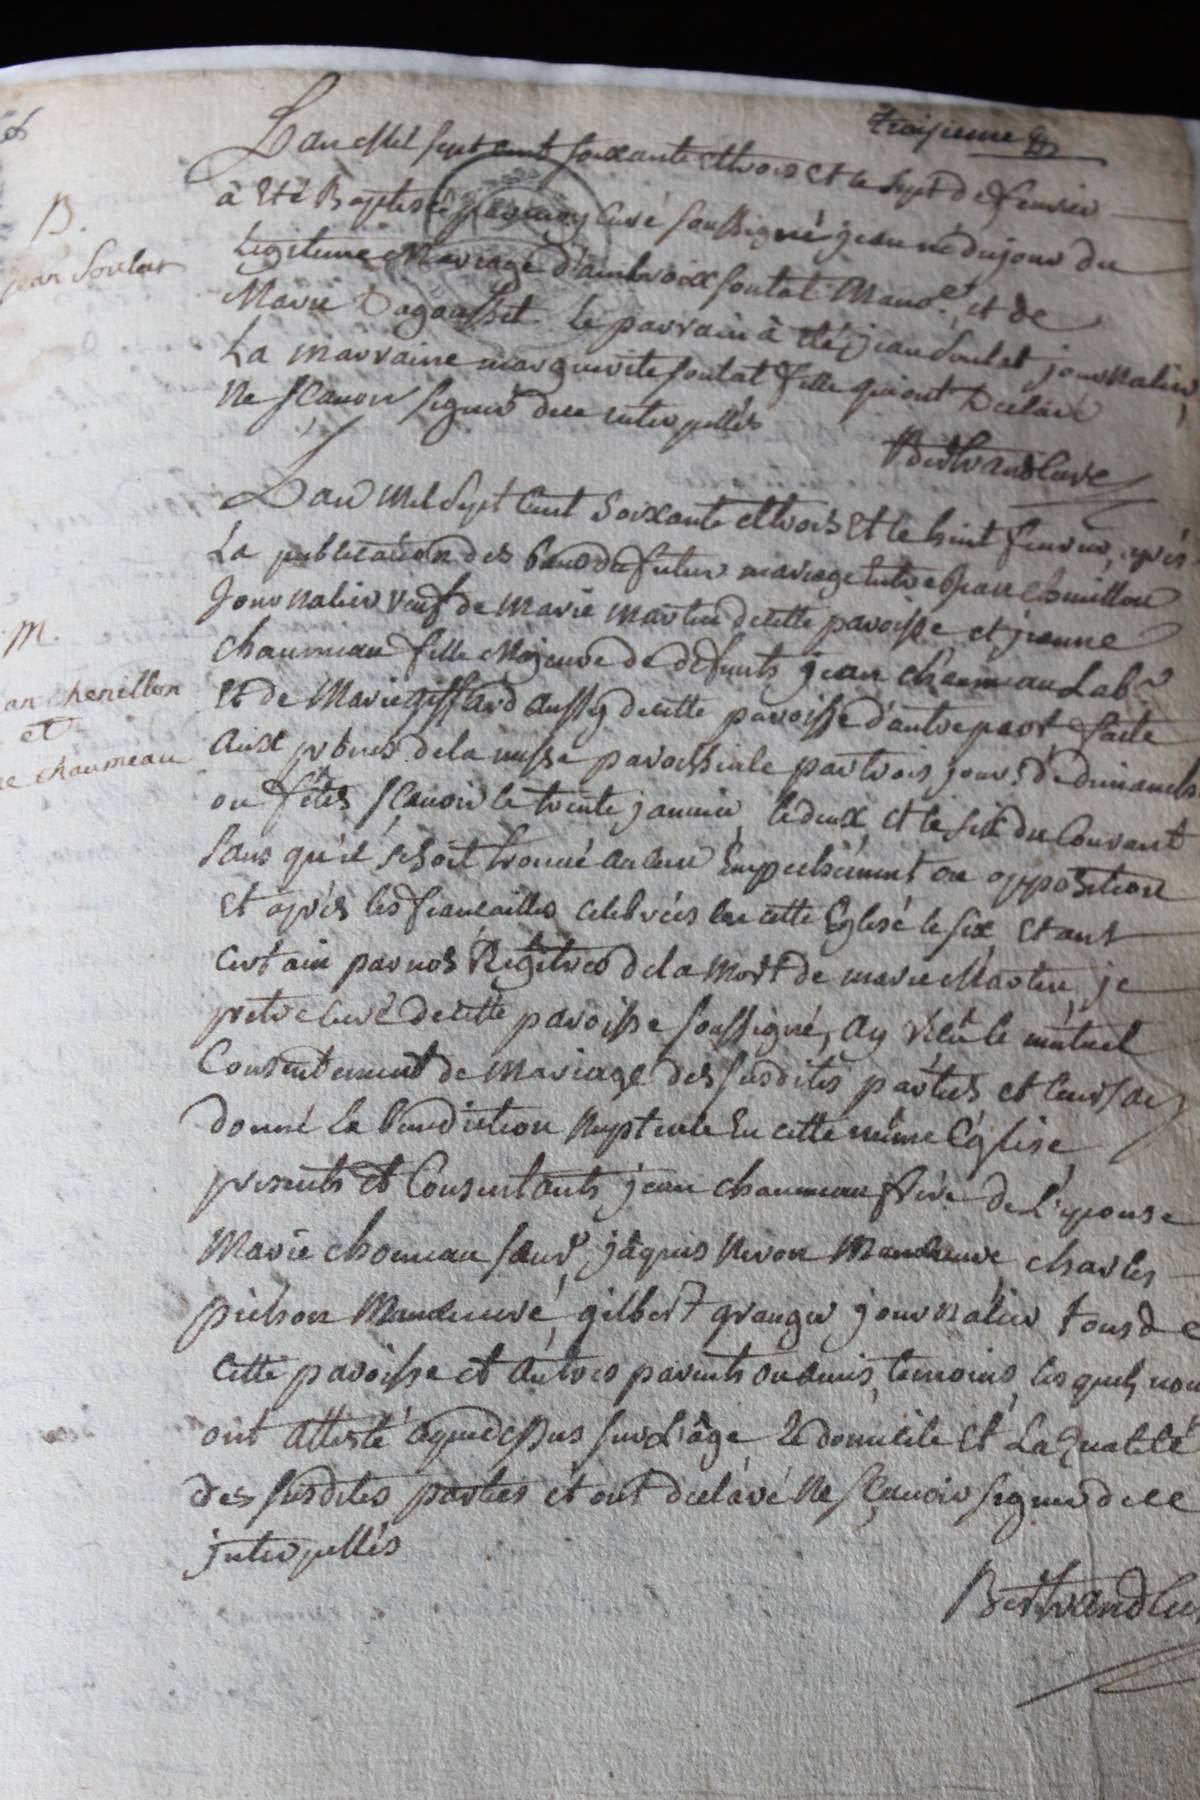 troisieme
B.
jean Soulat
L'an Mil sept cent soixante et trois et le sept de fevrier
à eté Baptisé par moy curé soussigné jean né du jour du
Legitime Mariage d'ambroix soulat Manoe. et de
Marie Dagousset le parrain à été jean Soulat journalier,
La marraine marguerite soulat fille qui ont declaré
ne sçavoir signer de ce interpellés
Bertrand Curé
M.
jean chenillon
et
jeanne chaumeau
L'an Mil Sept Cent Soixante et trois Et le huit fevrier, après
La publication des bans du futur mariage entre jean Chenillon
Journalier veuf de Marie Martin de cette paroisse, et jeanne
Chaumeau fille Majeure de défunts jean Chaumeau Labr
Et de Marie giffard aussy de cette paroisse d'autre part, faite
Aux prônes de la messe paroissiale par trois jours de dimanche
ou fêtes sçavoir le trente janvier, le deux, et le six du Courant
sans qu'il se soit trouvé aucun Empechement ou opposition
Et après les fiançailles celebrées en cette Eglise le six, Etant
Certain par nos Régitres de la Mort de marie Martin, je
pretre curé de cette paroisse soussigné, ay reçu le mutuel
Consentement de Mariage des susdites parties et leurs ay
donné la benediction Nuptiale En cette même Eglise,
presents et Consentants jean chaumeau frère de L'epouse
Marie chomeau sœur, jâques Neron Maneuvre charles
pichon Maneuvre, gilbert granger journalier tous de
Cette paroisse et autres parents ou amis, temoins, lesquels nous
ont attesté que dessus sur L'âge Le domicile Et La Qualité
des susdites parties et ont declaré Ne sçavoir signer de ce
interpellés
Bertrand Cu